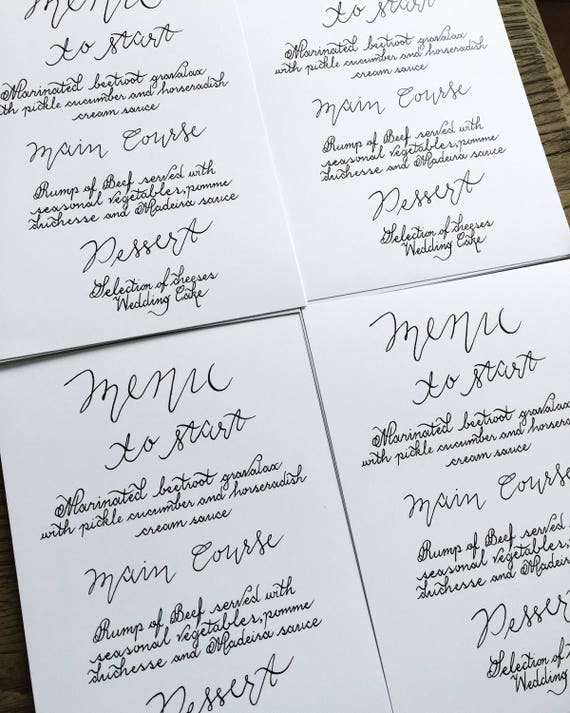 menu
to start
Marinated beetroot gravalax
with pickle cucumber and horseradish
cream sauce
Main Course
Rump of Beef served with
seasonal vegetables, pomme
duchesse and Madeira sauce
Dessert
Selection of cheeses
Wedding Cake
to start
Marinated beetroot gravalax
with pickle cucumber and horseradish
cream sauce
Main Course
Rump of Beef served with
seasonal vegetables, pomme
duchesse and Madeira sauce
Dessert
Selection of cheeses
Wedding Cake
menu
to start
Marinated beetroot gravalax
with pickle cucumber and horseradish
cream sauce
Main Course
Rump of Beef served with
seasonal vegetables, pomme
duchesse and Madeira sauce
Dessert
menu
to start
Marinated beetroot gravalax
with pickle cucumber and horsera
cream sauce
Main Course
Rump of Beef served
seasonal vegetables,
duchesse and Madeira
Dessert
Selection of
Wedding